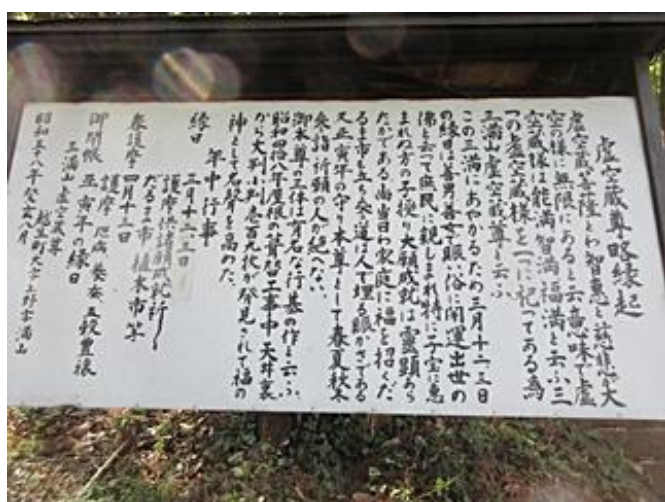 虚空蔵尊略縁起
虚空蔵菩薩とわ智恵と慈悲が大
空の様に無限にあると云意味で虚
空蔵様は能満智満福満と云ふ三
つの虚空蔵様を一つに祀つてある為
三満山虚空蔵尊と云ふ
この三満にあやかるため三月十二三日
の縁日は善男善女で賑い俗に開運出世の
佛と云つて庶民に親しまれ特に子宝に恵
まれぬ方の子授り大願成就は霊顕あら
たかである尚当日わ家庭に福を招くだ
るま市も立ち参道は人で埋る賑かさである
又丑寅年の守り本尊として春夏秋冬
参詣祈願の人が絶へない
御本尊の三体は有名な行基の作と云ふ
昭和四拾八年屋根の葺替工事中天井裏
から大判小判壱百九枚が発見されて福の
神として名声を高めた
年中行事
縁日 三月十二三日
護摩供諸願成就祈
だるま市植木市等
春護摩 四月十二日
護摩 家安五穀豊穣
御開帳 丑寅年の縁日
三満山虚空蔵尊
越生町大字上野字満山
昭和五八年癸亥八月